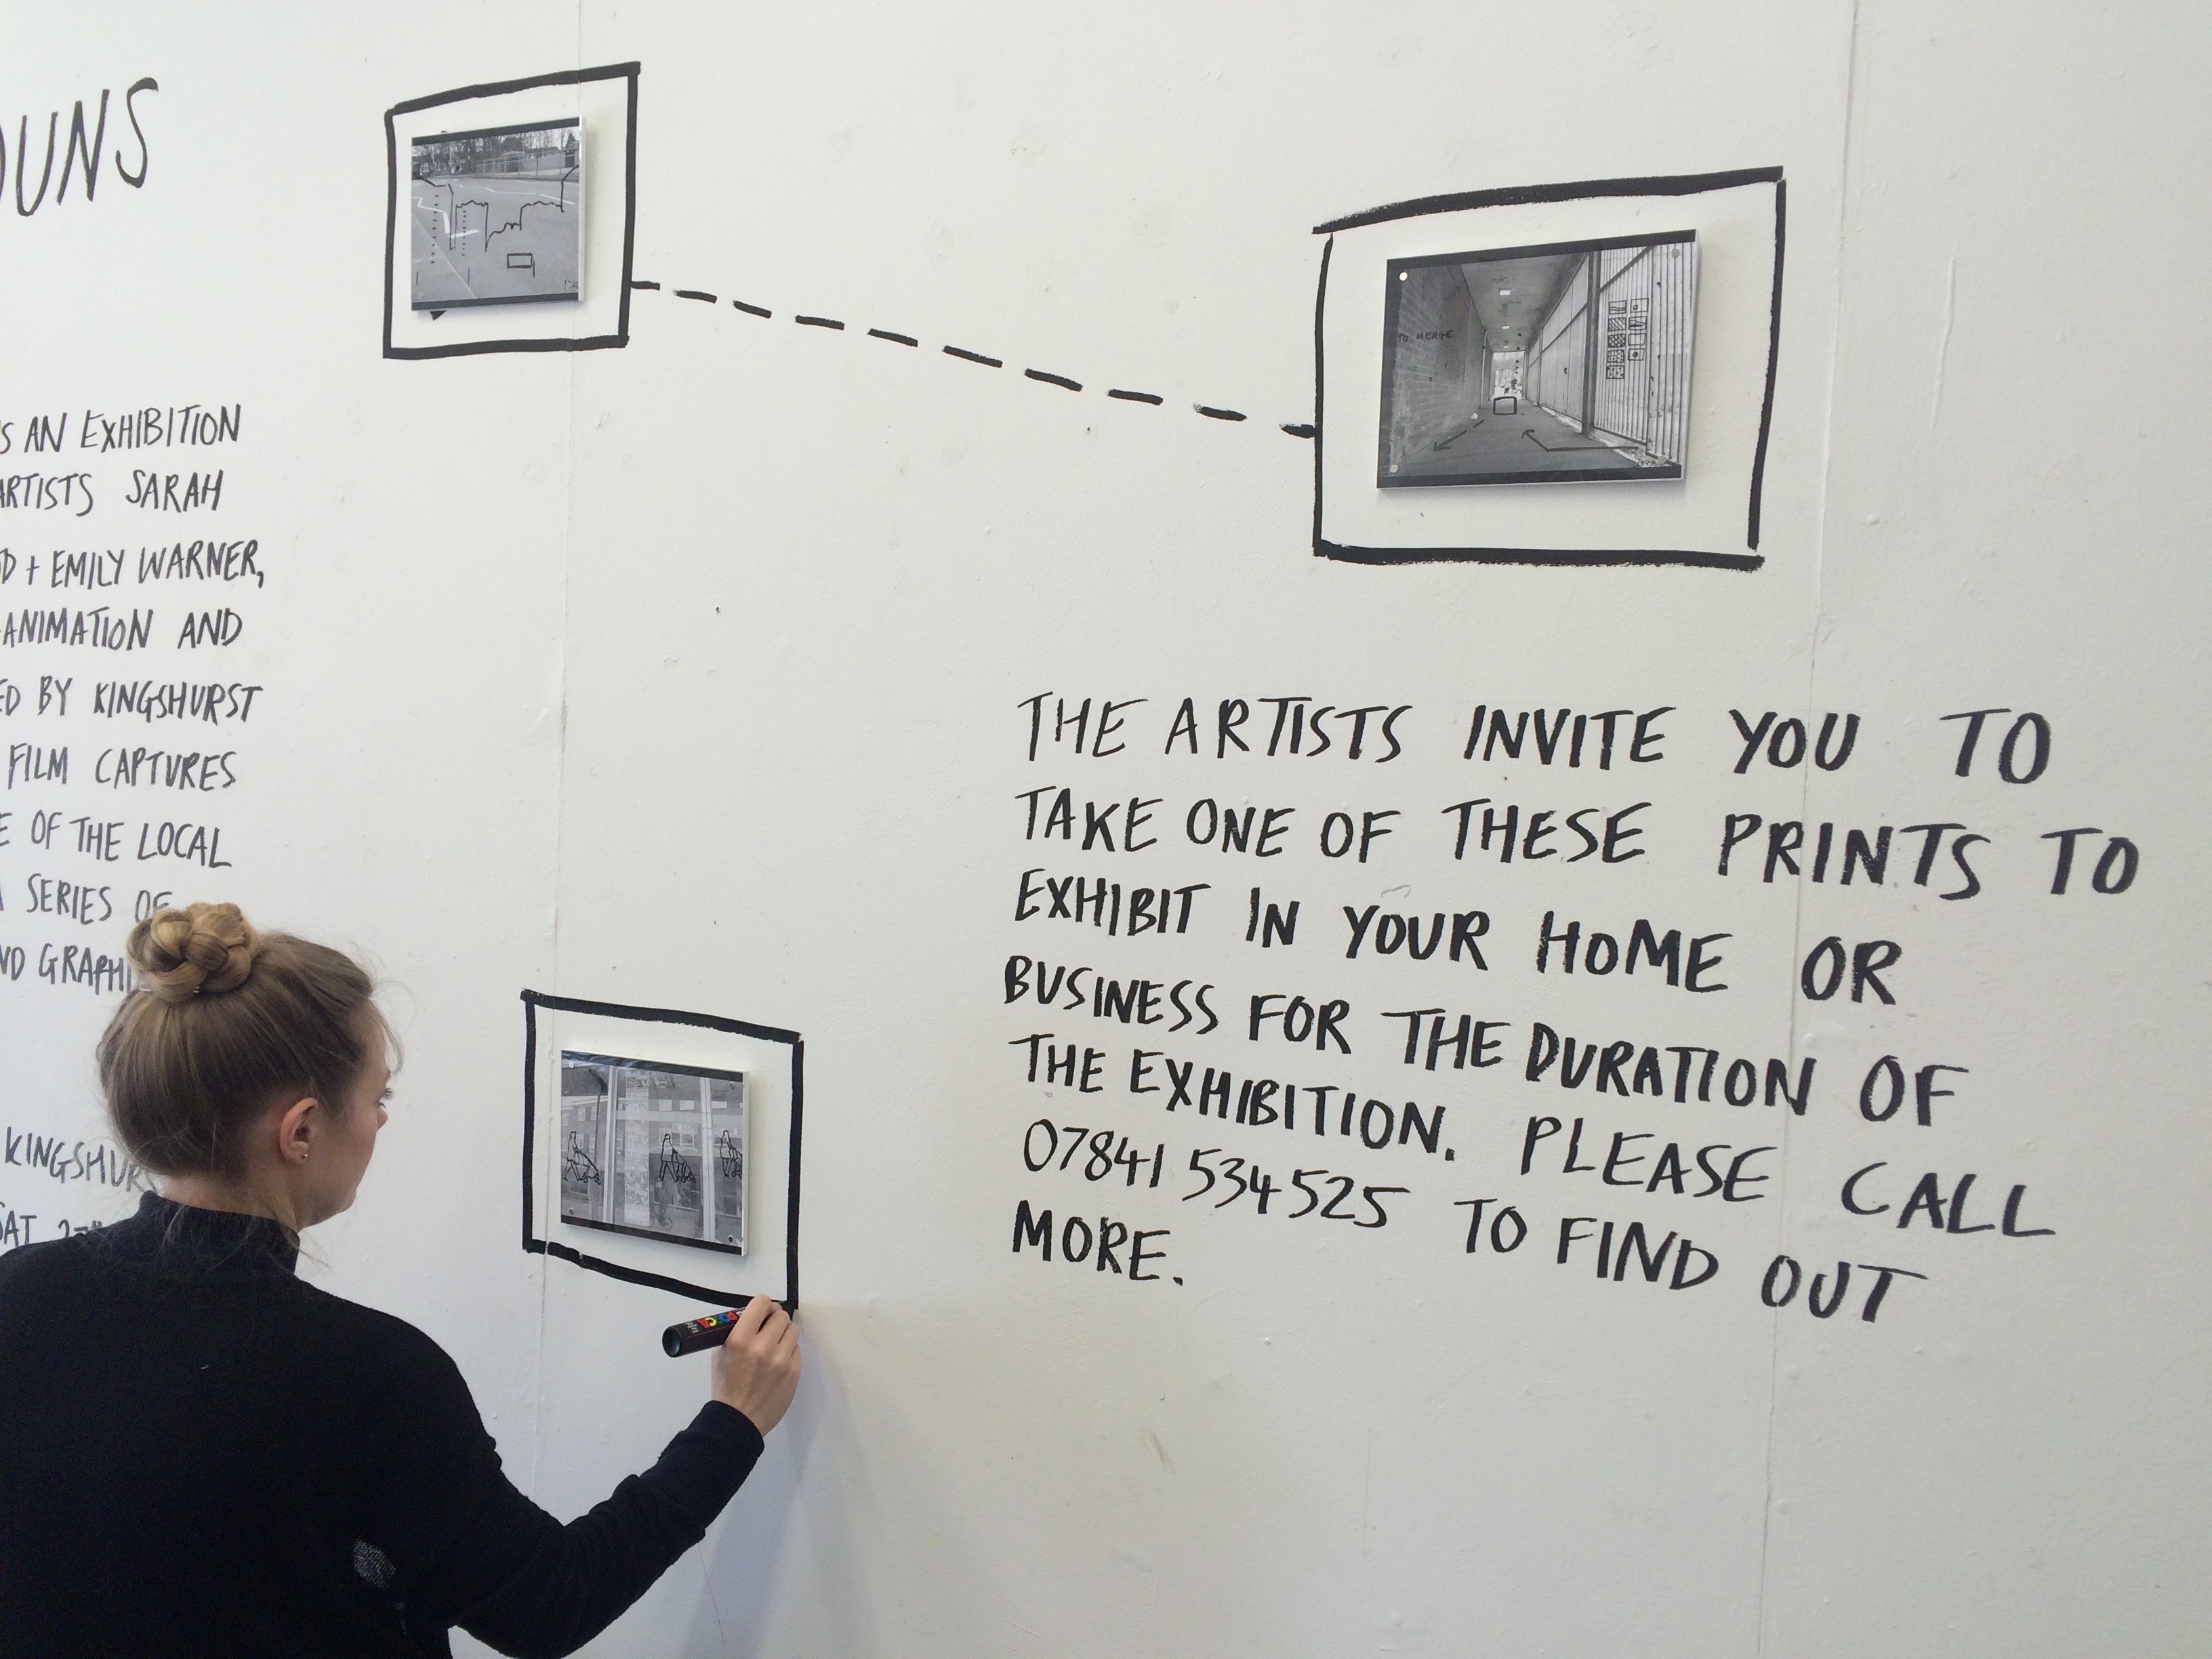 OUNS
S AN EXHIBITION
ARTISTS SARAH
D + EMILY WARNER,
ANIMATION AND
ED BY KINGSHURST
FILM CAPTURES
E OF THE LOCAL
A SERIES OF
ND GRAPHI
KINGSHUR
SAT
TO MERGE
THE ARTISTS INVITE YOU TO
TAKE ONE OF THESE PRINTS TO
EXHIBIT IN YOUR HOME OR
BUSINESS FOR THE DURATION OF
THE EXHIBITION. PLEASE CALL
07841 534525 TO FIND OUT
MORE.
POSCA